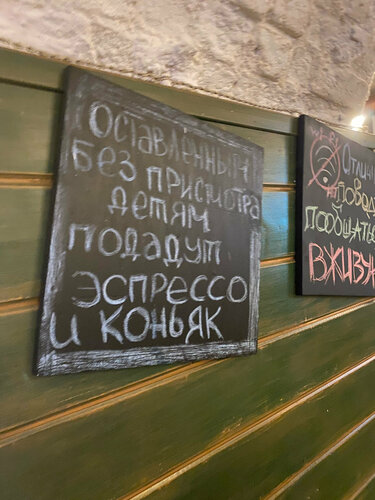 Оставленным
без присмотра
детям
подадут
эспрессо
и коньяк
Отличн
повод
пообщатьс
вживу